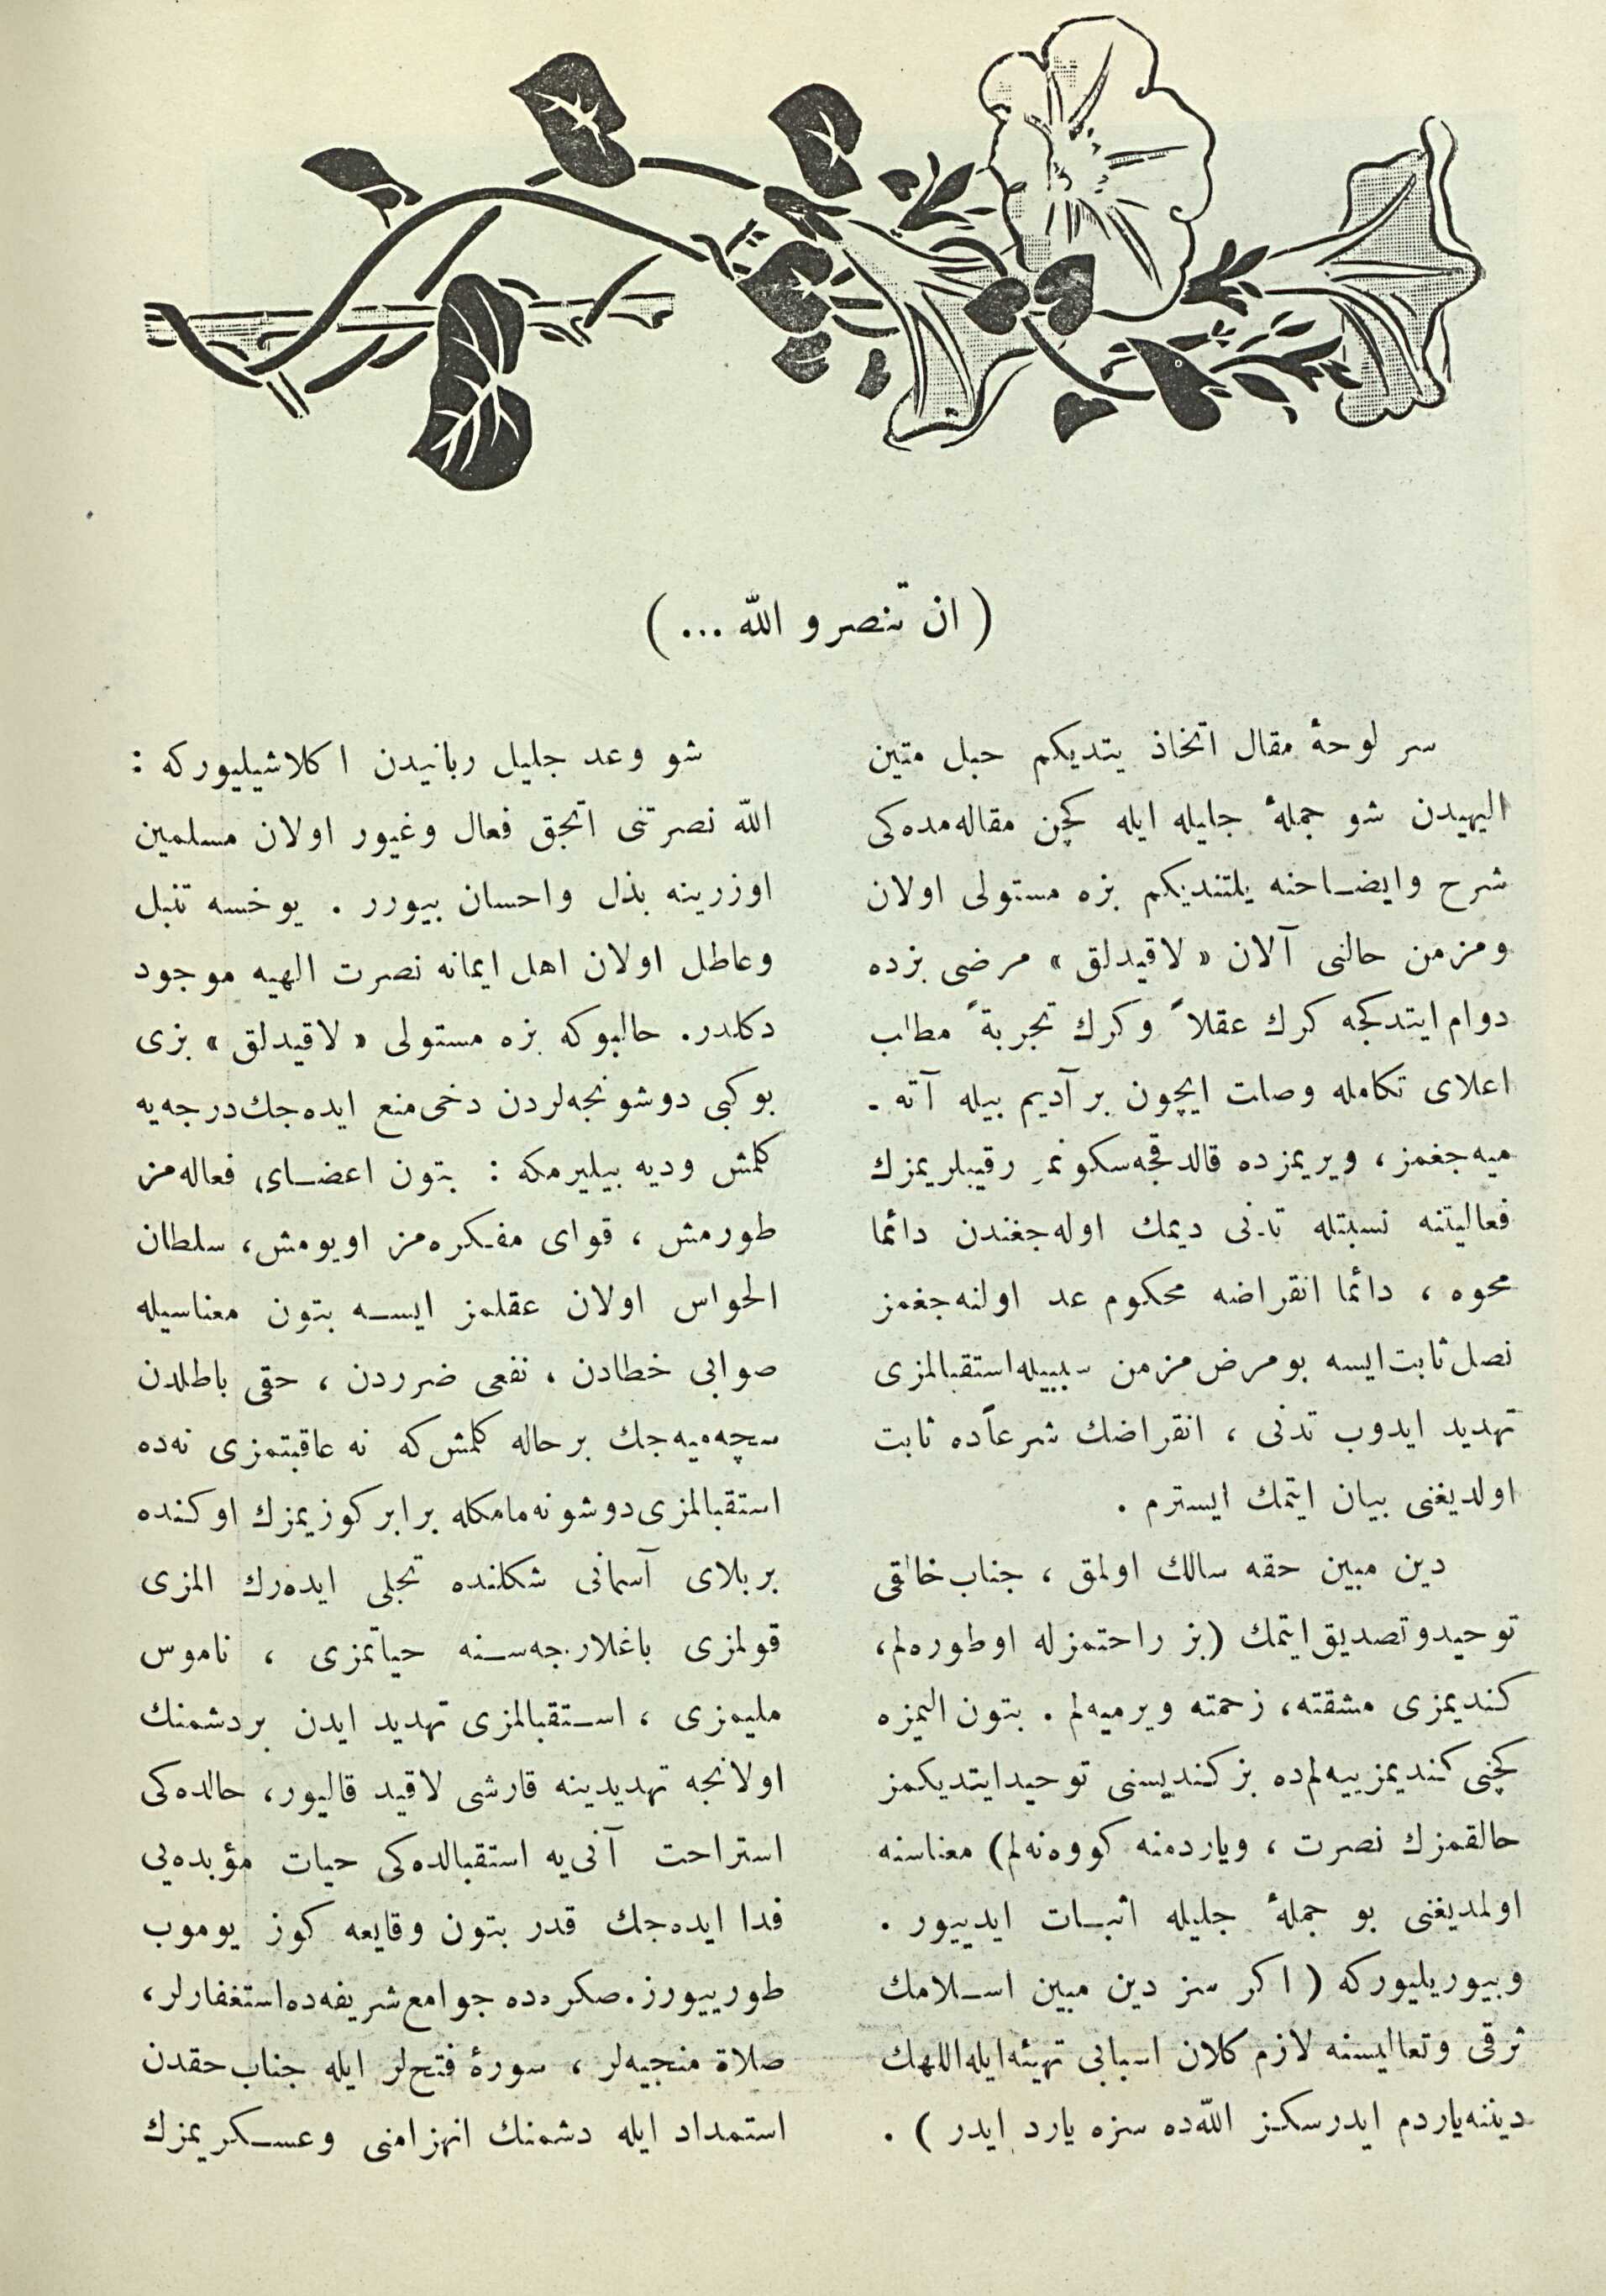 ( ان تنصرو الله ... )
سر لوحهٔ مقال اتخاذ یتدیكم حبل متین
الهیدن شو جملهٔ جلیله ایله كچن مقاله‌مده‌كی
شرح وایضاحنه یلتندیكم بزه مستولی اولان
ومزمن حالنی آلان « لاقیدلق » مرضی بزده
دوام ایتدكجه كرك عقلاً وكرك تجربةً مطلب
اعلای تكامله وصلت ایچون بر آدیم بیله آته -
میه‌جغمز ، ویریمزده قالدقجه سكونمز رقیبلریمزك
فعالیتنه نسبتله تدنی دیمك اوله‌جغندن دائما
محوه ، دائما انقراضه محكوم عد اولنه‌جغمز
نصل ثابت ایسه بومرض مزمن سببیله استقبالمزی
تهدید ایدوب تدنی ، انقراضك شرعاًده ثابت
اولدیغنی بیان ایتمك ایسترم .
دین مبین حقه سالك اولمق ، جناب خالقی
توحیدوتصدیق ایتمك (بز راحتمزله اوطوره‌لم ،
كندیمزی مشقته، زحمته ویرمیه‌لم . بتون الیمزه
كچنی كندیمز ییه‌لم‌ده بز كندیسنی توحیدایتدیكمز
حالقمزك نصرت ، ویاردمنه كووه‌نه‌لم) معناسنه
اولمدیغنی بو جملهٔ جلیله اثبات ایدییور .
وبیوریلیوركه ( اكر سز دین مبین اسلامك
ترقی وتعالیسنه لازم كلان اسبابی تهیئه‌ایله‌اللهك
دیننه‌یاردم ایدرسكز الله‌ده سزه یارد ایدر ) .
شو وعد جلیل ربانیدن اكلاشیلیوركه :
الله نصرتنی انجق فعال وغیور اولان مسلمین
اوزرینه بذل واحسان بیورر . یوخسه تنبل
وعاطل اولان اهل ایمانه نصرت الهیه موجود
دكلدر. حالبوكه بزه مستولی « لاقیدلق » بزی
بوكبی دوشونجه‌لردن دخی‌منع ایده‌جك‌درجه‌یه
كلمش ودیه بیلیرمكه : بتون اعضای فعاله‌مز
طورمش ، قوای مفكره‌مز اویومش، سلطان
الحواس اولان عقلمز ایسه بتون معناسیله
صوابی خطادن ، نفعی ضرردن ، حقی باطلدن
سچه‌میه‌جك برحاله كلمش‌كه نه عاقبتمزی نه‌ده
استقبالمزی‌دوشونه‌مامكله برابر كوزیمزك اوكنده
بربلای آسمانی شكلنده تجلی ایده‌رك المزی
قولمزی باغلارجه‌سنه حیاتمزی ، ناموس
ملیمزی ، استقبالمزی تهدید ایدن بردشمنك
اولانجه تهدیدینه قارشی لاقید قالیور، حالده‌كی
استراحت آنی‌یه استقبالده‌كی حیات مؤبده‌یی
فدا ایده‌جك قدر بتون وقایعه كوز یوموب
طورییورز.صكره‌ده جوامع‌شریفه‌ده‌استغفارلر،
صلاة منجیه‌لر ، سورهٔ فتح‌لر ایله جناب‌حقدن
استمداد ایله دشمنك انهزامنی وعسكریمزك